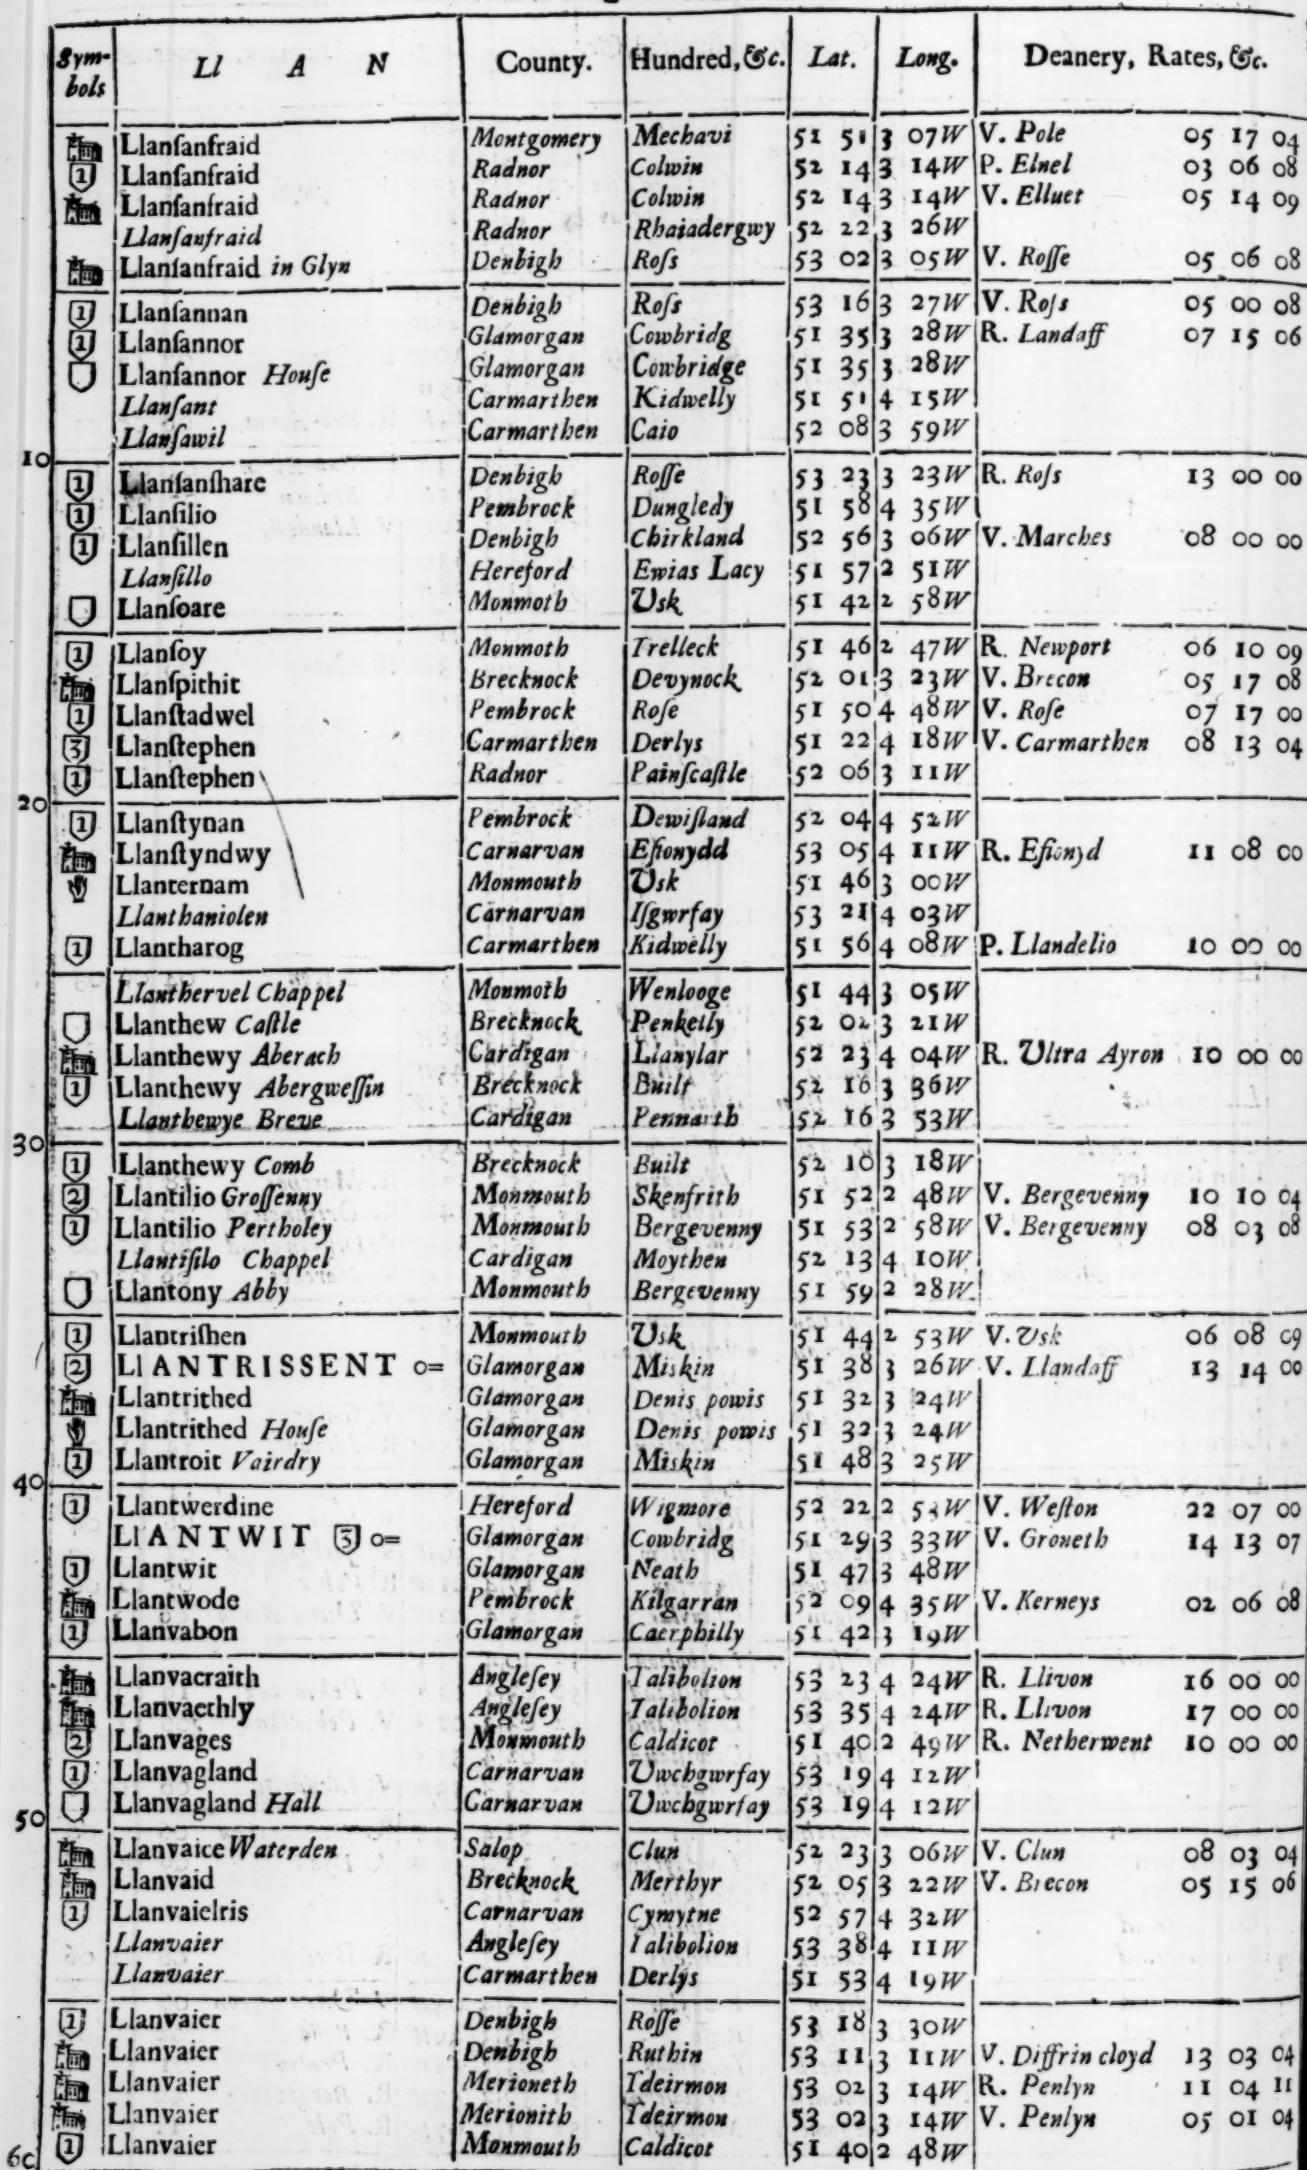 Sym-bols Ll A N County. Hundred, &c. Lat. Long. Deanery, Rates, &c.
Llanſanfraid Montgomery Mechavi 51 51 3 07W V. Pole 05 17 04
1 Llanſanfraid Radnor Colwin 52 14 3 14W P. Elnel 03 06 08
Llanſanfraid Radnor Colwin 52 14 3 14W V. Elluet 05 14 09
Llanſanfraid Radnor Rhaiadergwy 52 22 3 26W
Llanſanfraid in Glyn Denbigh Roſs 53 02 3 05W V. Roſſe 05 06 08
1 Llanſannan Denbigh Roſs 53 16 3 27W V. Roſs 05 00 08
1 Llanſannor Glamorgan Cowbridg 51 35 3 28W R. Landaff 07 15 06
Llanſannor Houſe Glamorgan Cowbridge 51 35 3 28W
Llanſant Carmarthen Kidwelly 51 51 4 15W
Llanſawil Carmarthen Caio 52 08 3 59W
10
1 Llanſanſhare Denbigh Roſſe 53 23 3 23W R. Roſs 13 00 00
1 Llanſilio Pembrock Dungledy 51 58 4 35W
1 Llanſillen Denbigh Chirkland 52 56 3 06W V. Marches 08 00 00
Llanſillo Hereford Ewias Lacy 51 57 2 51W
Llanſoare Monmoth Usk 51 42 2 58W
1 Llanſoy Monmoth Trelleck 51 46 2 47W R. Newport 06 10 09
Llanſpithit Brecknock Devynock 52 01 3 23W V. Brecon 05 17 08
1 Llanſtadwel Pembrock Roſe 51 50 4 48W V. Roſe 07 17 00
3 Llanſtephen Carmarthen Derlys 51 22 4 18W V. Carmarthen 08 13 04
1 Llanſtephen Radnor Painſcaſtle 52 06 3 11W
20
1 Llanſtynan Pembrock Dewiſland 52 04 4 52W
Llanſtyndwy Carnarvan Eſionydd 53 05 4 11W R. Eſionyd 11 08 00
Llanternam Monmouth Usk 51 46 3 00W
Llanthaniolen Carnarvan Iſgwrfay 53 21 4 03W
1 Llantharog Carmarthen Kidwelly 51 56 4 08W P. Llandelio 10 00 00
Llanthervel Chappel Monmoth Wenlooge 51 44 3 05W
Llanthew Caſtle Brecknock Penkelly 52 02 3 21W
Llanthewy Aberach Cardigan Llanylar 52 23 4 04W R. Ultra Ayron 10 00 00
1 Llanthewy Abergweſſin Brecknock Built 52 16 3 36W
Llanthewye Breve Cardigan Pennarth 52 16 3 53W
30
1 Llanthewy Comb Brecknock Built 52 10 3 18W
2 Llantilio Groſſenny Monmouth Skenfrith 51 52 2 48W V. Bergevenny 10 10 04
1 Llantilio Pertholey Monmouth Bergevenny 51 53 2 58W V. Bergevenny 08 03 08
Llantiſilo Chappel Cardigan Moythen 52 13 4 10W
Llantony Abby Monmouth Bergevenny 51 59 2 28W
1 Llantriſhen Monmouth Usk 51 44 2 53W V. Usk 06 08 09
2 LlANTRISSENT o= Glamorgan Miskin 51 38 3 26W V. Llandaff 13 14 00
Llantrithed Glamorgan Denis powis 51 32 3 24W
Llantrithed Houſe Glamorgan Denis powis 51 32 3 24W
1 Llantroit Vairdry Glamorgan Miskin 51 48 3 25W
40
1 Llantwerdine Hereford Wigmore 52 22 2 W V. Weſton 22 07 00
LlANTWIT 3 o= Glamorgan Cowbridg 51 29 3 33W V. Groneth 14 13 07
1 Llantwit Glamorgan Neath 51 47 3 48W
Llantwode Pembrock Kilgarran 52 09 4 35W V. Kerneys 02 06 08
1 Llanvabon Glamorgan Caerphilly 51 42 3 19W
Llanvacraith Angleſey Talibolion 53 23 4 24W R. Llivon 16 00 00
Llanvaethly Angleſey Talibolion 53 35 4 24W R. Llivon 17 00 00
2 Llanvages Monmouth Caldicot 51 40 2 49W R. Netherwent 10 00 00
1 Llanvagland Carnarvan Uwchgwrfay 53 19 4 12W
Llanvagland Hall Carnarvan Uwchgwrfay 53 19 4 12W
50
Llanvaice Waterden Salop Clun 52 23 3 06W V. Clun 08 03 04
Llanvaid Brecknock Merthyr 52 05 3 22W V. Brecon 05 15 06
1 Llanvaielris Carnarvan Cymytne 52 57 4 32W
Llanvaier Angleſey Talibolion 53 38 4 11W
Llanvaier Carmarthen Derlys 51 53 4 19W
1 Llanvaier Denbigh Roſſe 53 18 3 30W
Llanvaier Denbigh Ruthin 53 11 3 11W V. Diffrin cloyd 13 03 04
Llanvaier Merioneth Tdeirmon 53 02 3 14W R. Penlyn 11 04 11
Llanvaier Merionith Tdeirmon 53 02 3 14W V. Penlyn 05 01 04
1 Llanvaier Monmouth Caldicot 51 40 2 48W
60